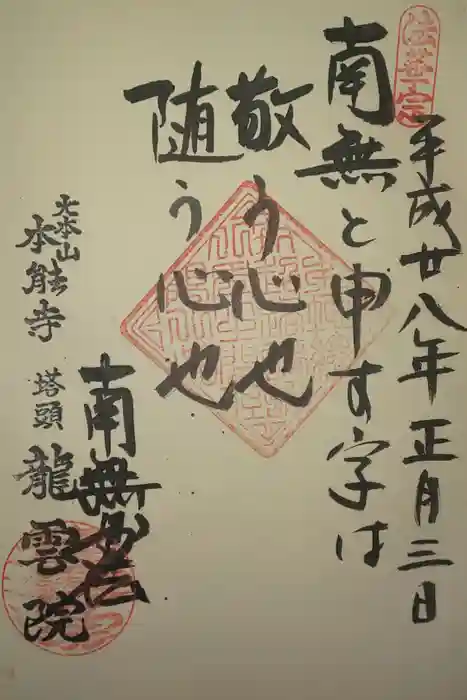 法華宗
平成廿八年正月三日
南無と申す字は
敬う心也
随う心也
南無妙法
大本山
本能寺
塔頭
龍雲院